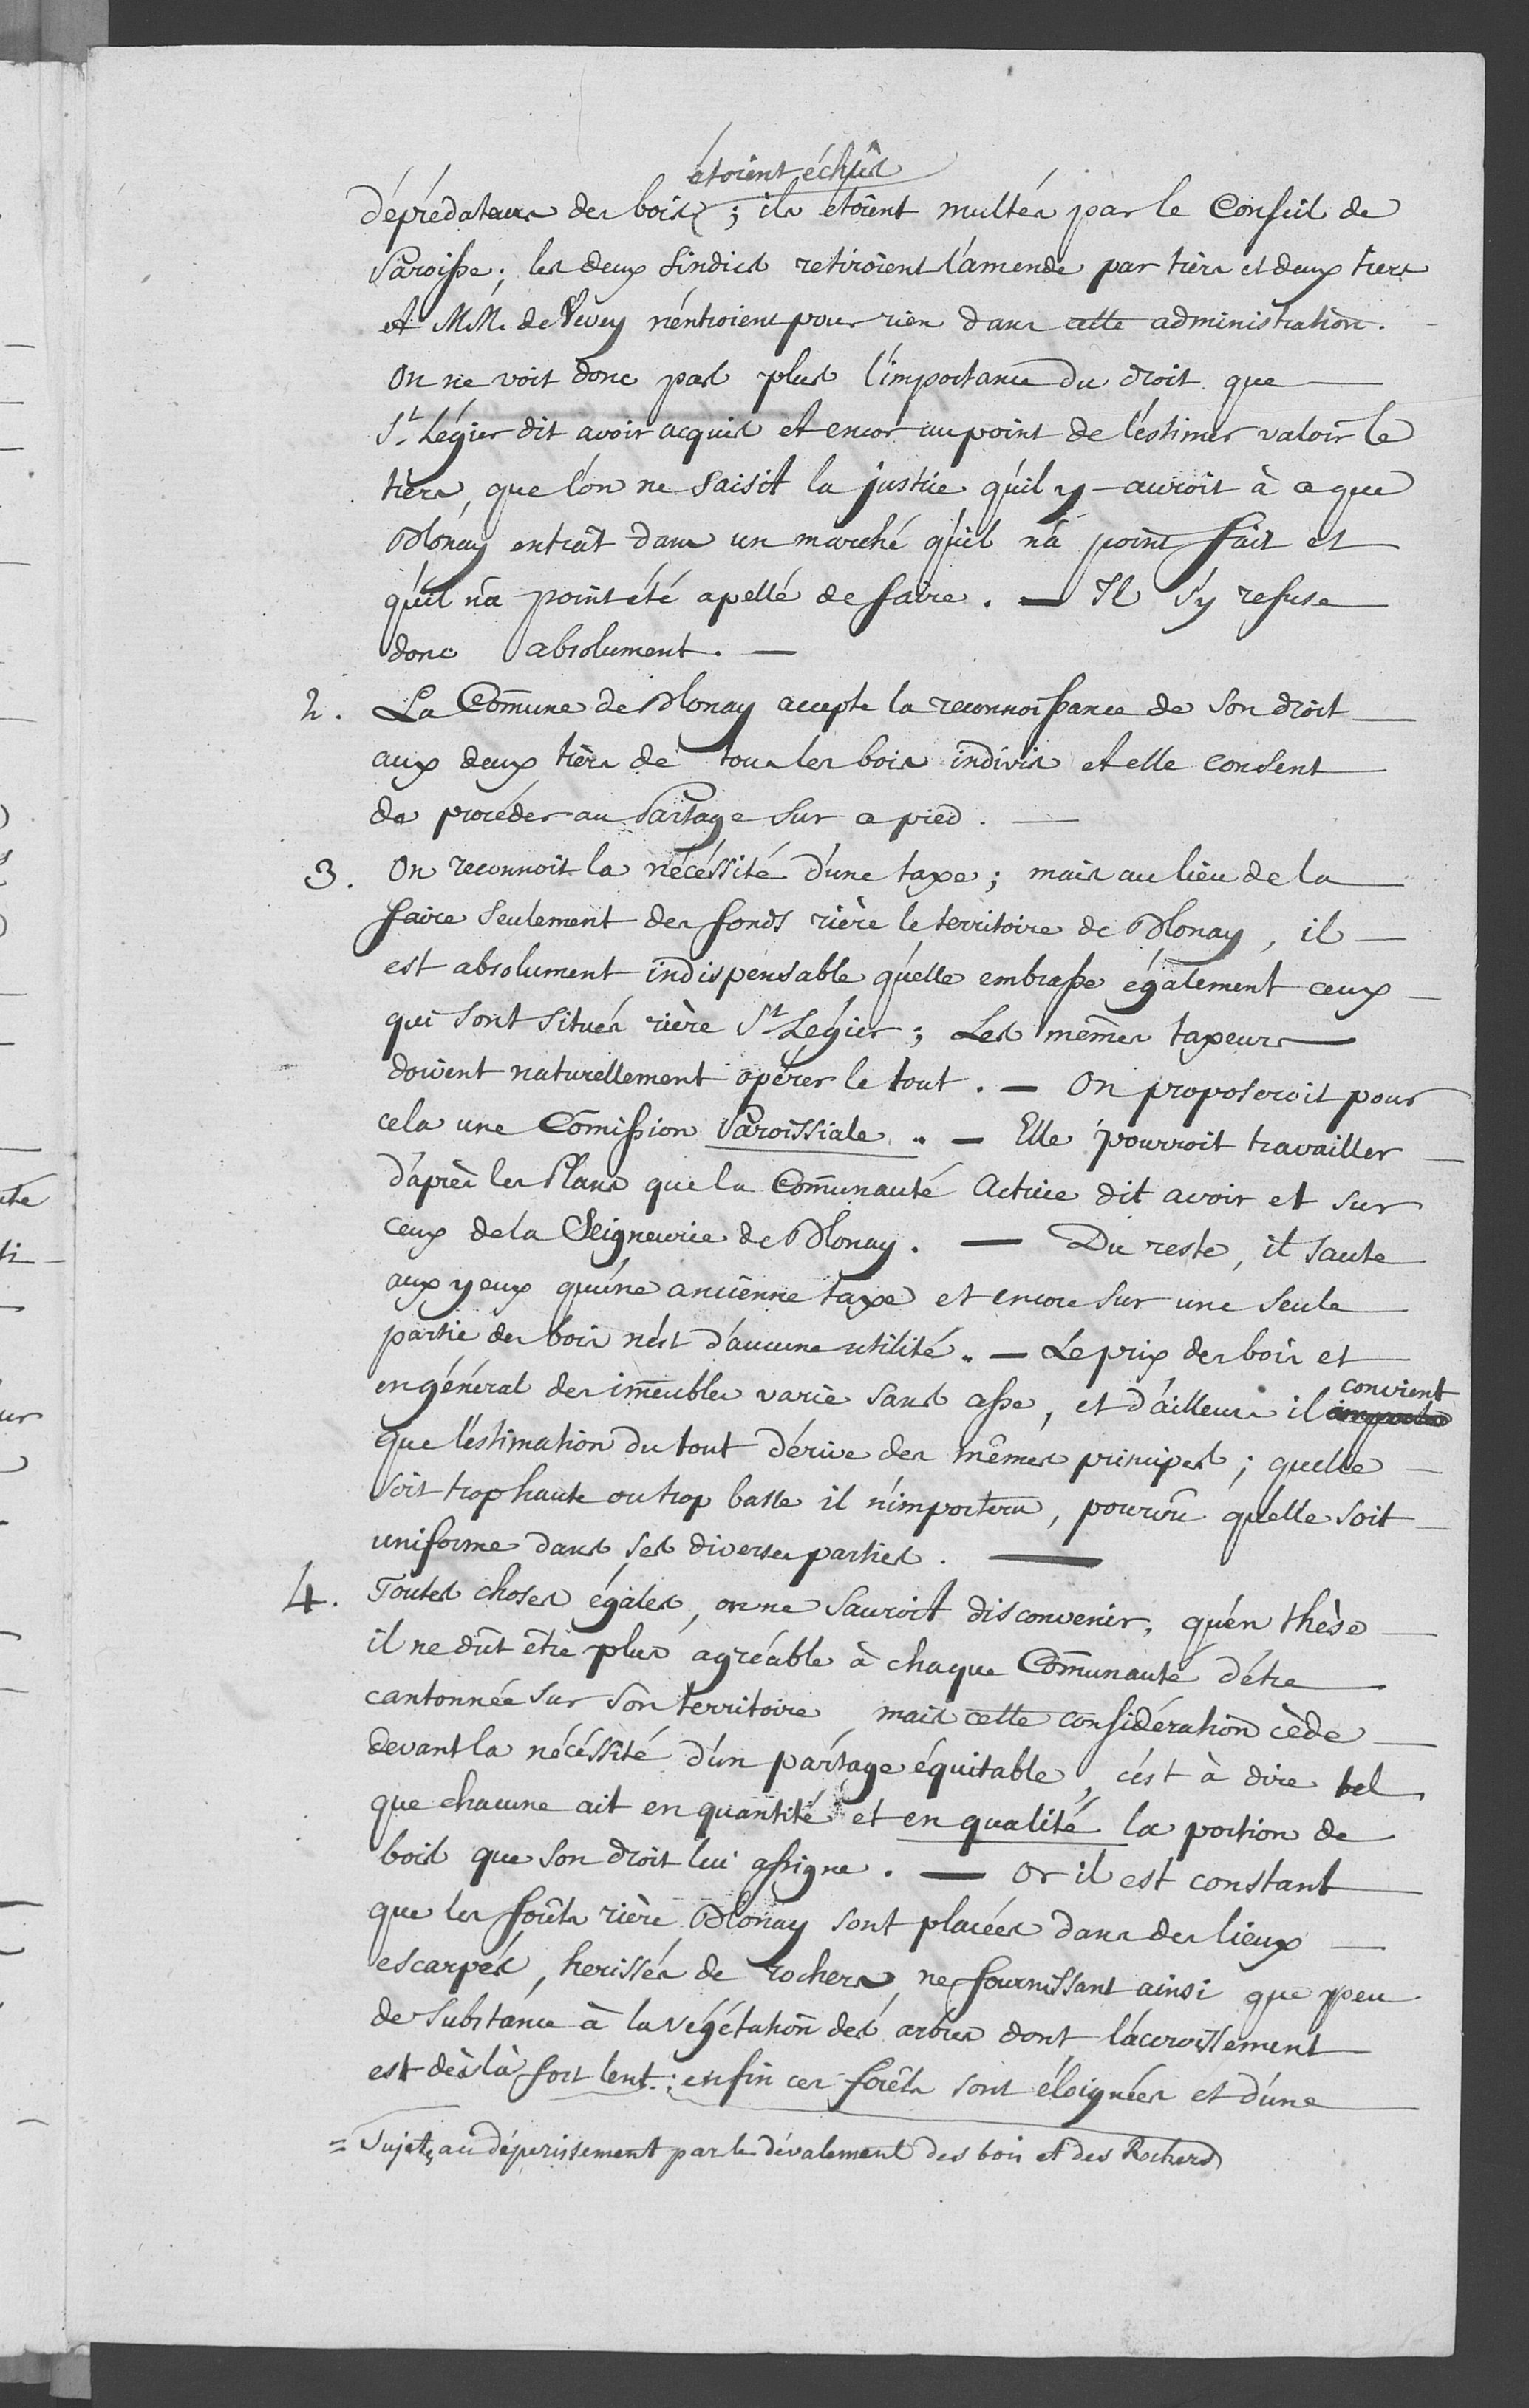 étoient échûs
déprédateurs des bois ; ils etoient multés par le Conseil de
Paroisse ; les deux Sindics retiroient l'amende par tiers et deux tiers
et MM. de Vevey n'entroient pour rien dans cette administration.
On ne voit donc pas plus l'importance du droit que
St Légier dit avoir acquis et encor au point de l'estimer valoir le
tiers, que l'on ne saisit la justice qu'il y auroit à ce que
Blonay entrat dans un marché qu'il n'a point fait et
qu'il n'a point été apellé de faire. — Il s'y refuse
donc absolument. —
2. La Comune de Blonay accepte la reconnoissance de son droit
aux deux tiers de tous les bois indivis et elle consent
de procéder au Partage sur ce pied. —
3. On reconnoit la nécéssité d'une taxe ; mais au lieu de la
faire seulement des fonds rière le territoire de Blonay, il
est absolument indispensable qu'elle embrasse également ceux
qui sont situés rière St Légier ; Les mêmes taxeurs
doivent naturellement opérer le tout. — On proposeroit pour
cela une Comission Paroissiale. — Elle pourroit travailler
d'après les Plans que la Comunauté Actrice dit avoir et sur
ceux de la Seigneurie de Blonay. — Du reste, il saute
aux yeux qu'une ancienne taxe et encore sur une seule
partie des bois n'est d'aucune utilité. — Le prix des bois et
en général des imeubles varie sans cesse, et d'ailleurs il convient
que l'estimation du tout dérive des mêmes principes ; qu'elle
soit trop haute ou trop basse il n'importera, pourvû qu'elle soit
uniforme dans ses diverses parties. —
4. Toutes choses égales, on ne sauroit disconvenir, qu'en thèse
il ne dût être plus agréable à chaque Comunauté d'être
cantonnée sur son territoire mais cette considération cède
devant la nécéssité d'un partage équitable, c'est à dire tel
que chacune ait en quantité et en qualité la portion de
bois que son droit lui assigne. — Or il est constant
que les forêts rière Blonay sont placées dans des lieux
escarpés, herissés de rochers, ne fournissant ainsi que peu
de substance à la végétation des arbres dont l'accroissement
est dès là fort lent ; enfin ces forêts sont éloignées et d'une
= Sujets au dépérissement par le dévalement des bois et des Rochers